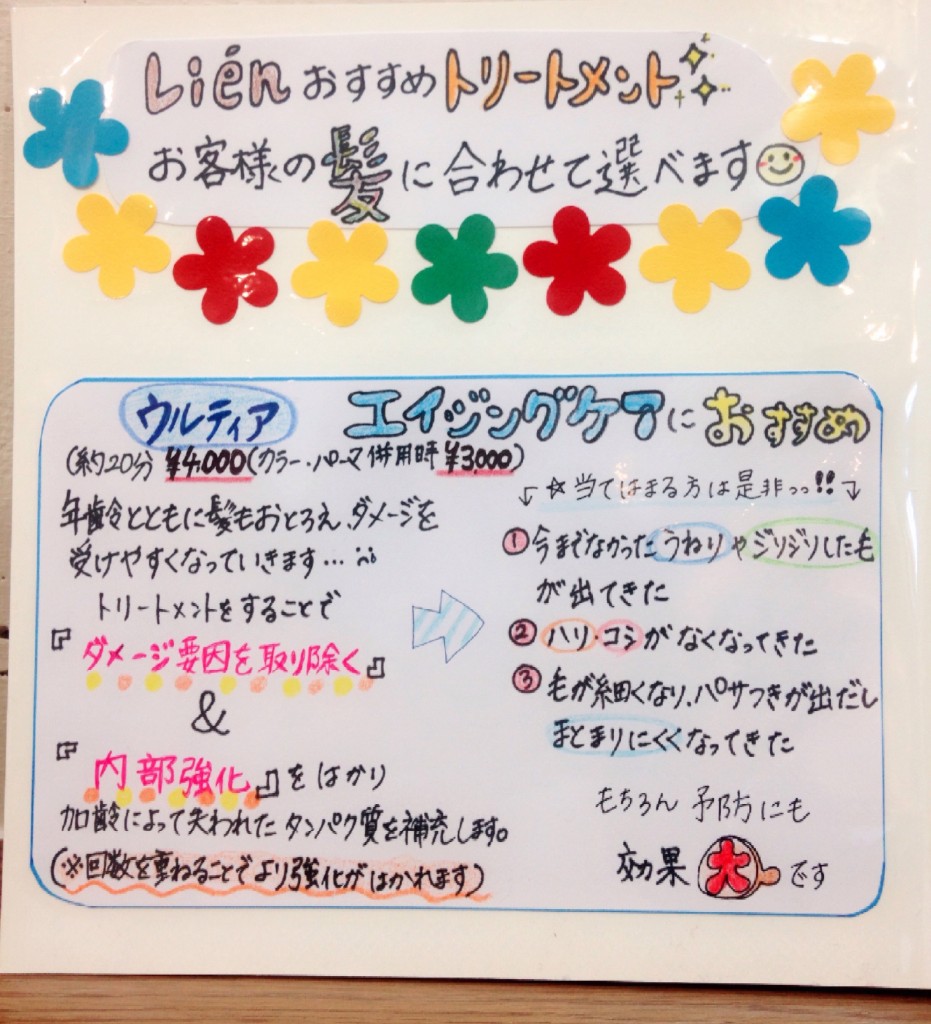 Liên おすすめ トリートメント
お客様の髪に合わせて選べます
ウルティア
(約20分) ¥4,000(カラー・パーマ併用時 ¥3,000)
年齢とともに髪もおとろえ、ダメージを
受けやすくなっていきます…
トリートメントをすることで
『ダメージ要因を取り除く』
&
『内部強化』をはかり
加齢によって失われたタンパク質を補充します。
(※回数を重ねることでより強化がはかれます)
エイジングケアにおすすめ
☆当てはまる方は是非っっ!!
① 今までなかったうねりやジリジリした毛
が出てきた
② ハリ・コシがなくなってきた
③ 毛が細くなり、パサつきが出だし
まとまりにくくなってきた
もちろん 予防にも
効果 大 です